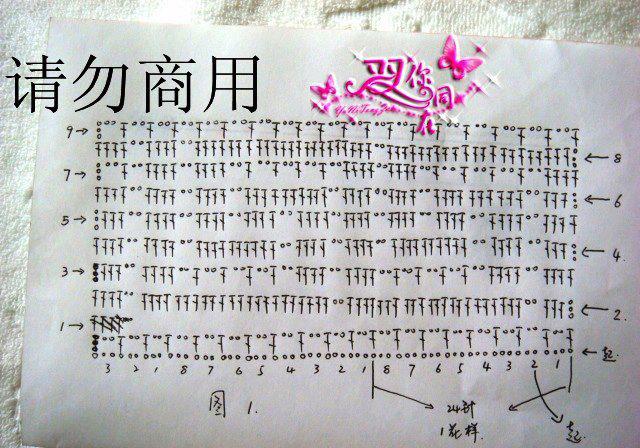 请勿商用
双你同在
9→
←8
7→
←6
5→
←4.
3→
←2.
1→
←起.
3 2 1 8 7 6 5 4 3 2 1 8 7 6 5 4 3 2 1
图 1.
24针
1花样
起.